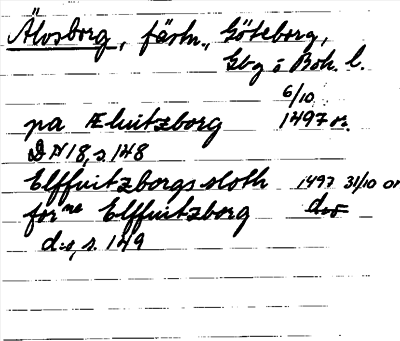 Älvsborg, fästn., Göteborg,
Gbg o Boh. l.
6/10
pa Ælwitzborg 1497 or.
DN 18, s. 148
Elffuitzborgs sloth 1497 31/10 or
forne Elffuitzborg do
d:o, s. 149